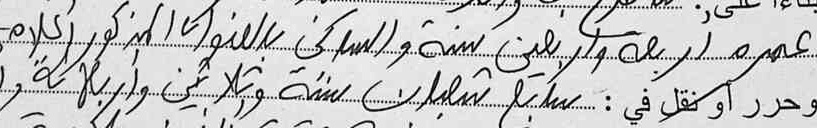 عمره أربعة وأربعين سنة والساكن بالعنوان المذكور أعلاه
وحرر أو نقل في : سابع شعبان سنة وثلاثين وأربعمائة و